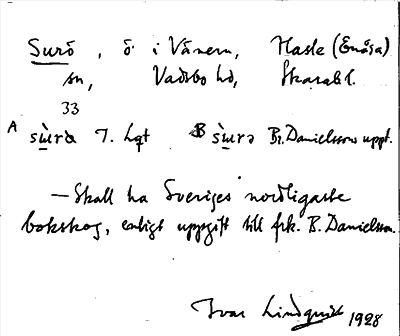 Surö, ö i Vänern, Hasle (Enåsa)
sn, Vadsbo hd, Skarab l.
33
A sùrɑ J. Lqt B sùrə Br. Danielssons uppt.
– Skall ha Sveriges nordligaste
bokskog, enligt uppgift till frk. B. Danielsson.
Ivar Lindquist 1928